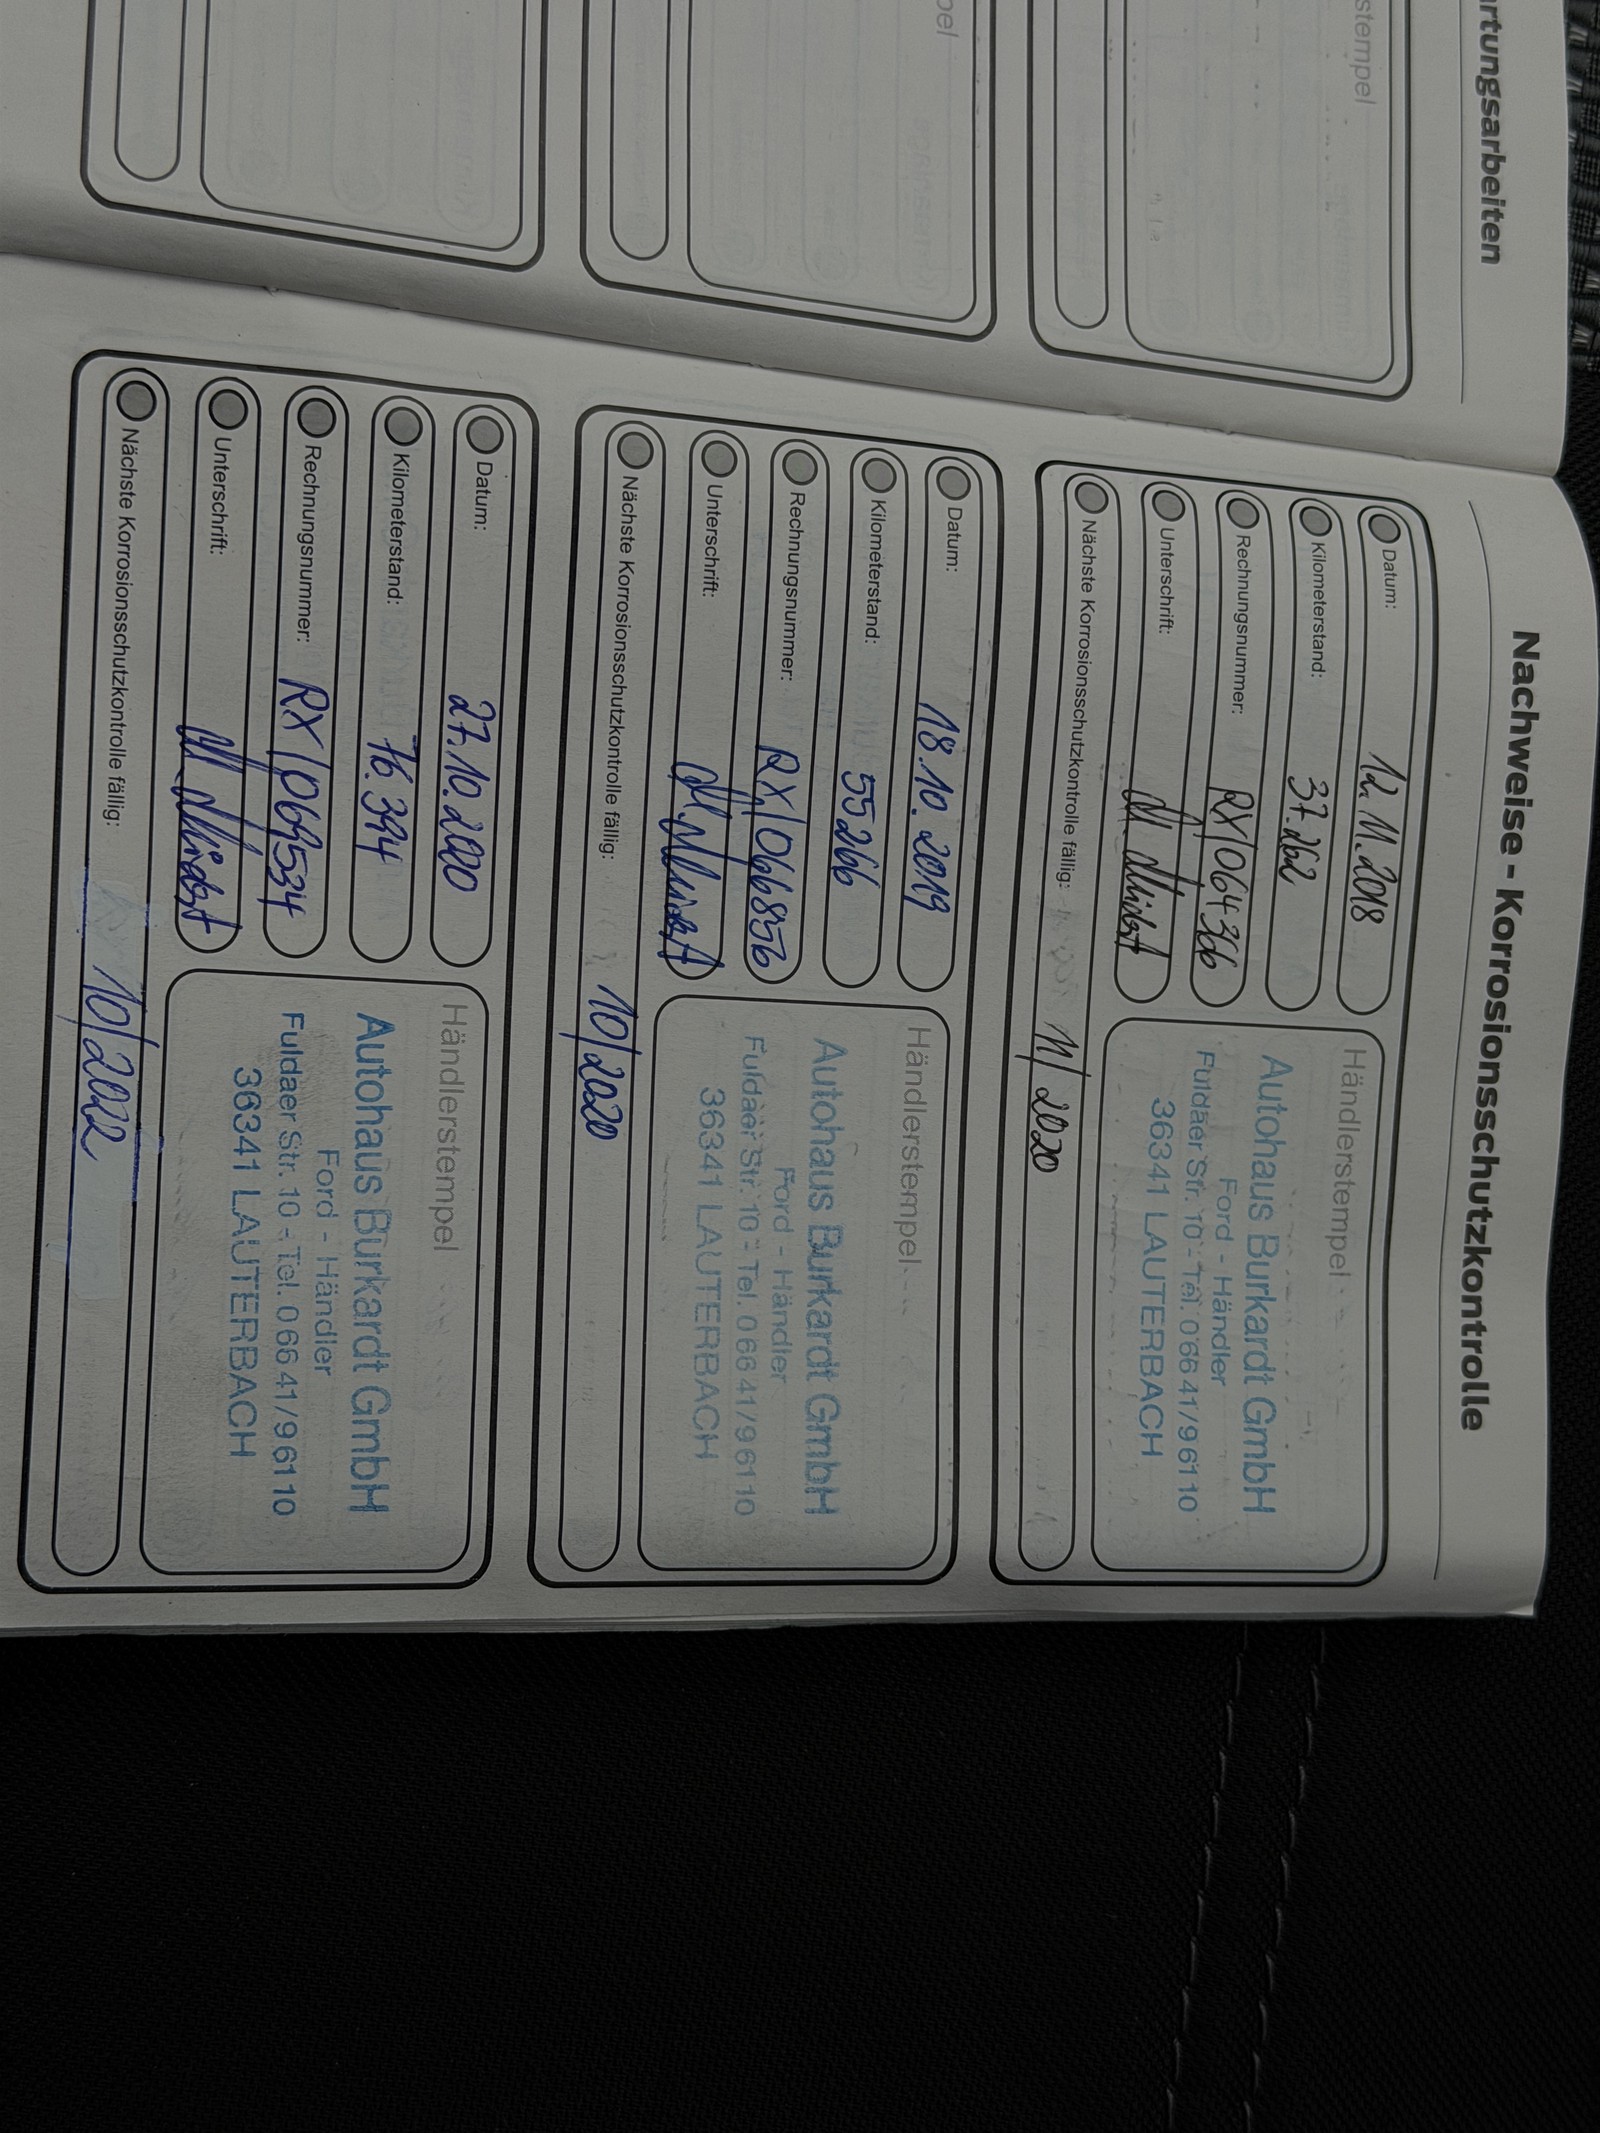 rtungsarbeiten
stempel
pel
Nachweise - Korrosionsschutzkontrolle
Datum: 12.11.2018
Kilometerstand: 37.262
Rechnungsnummer: RX/064366
Unterschrift:
Händlerstempel
Autohaus Burkardt GmbH
Ford - Händler
Fuldaer Str. 10 - Tel. 0 66 41/9 61 10
36341 LAUTERBACH
Nächste Korrosionsschutzkontrolle fällig: 11/2020
Datum: 18.10.2019
Kilometerstand: 55266
Rechnungsnummer: RX/066856
Unterschrift:
Händlerstempel
Autohaus Burkardt GmbH
Ford - Händler
Fuldaer Str. 10 - Tel. 0 66 41/9 61 10
36341 LAUTERBACH
Nächste Korrosionsschutzkontrolle fällig: 10/2020
Datum: 27.10.2020
Kilometerstand: 76.394
Rechnungsnummer: RX/069534
Unterschrift:
Händlerstempel
Autohaus Burkardt GmbH
Ford - Händler
Fuldaer Str. 10 - Tel. 0 66 41/9 61 10
36341 LAUTERBACH
Nächste Korrosionsschutzkontrolle fällig: 10/2022